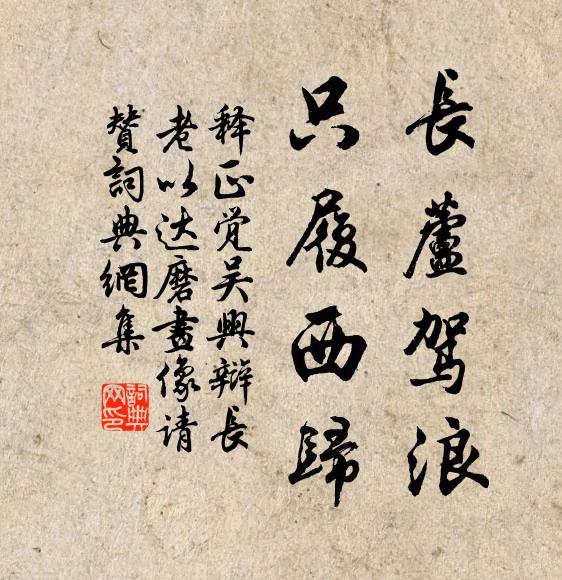 長蘆駕浪
只履西歸
释正觉吴興辯長
老以达磨畫像请
贊詞典網集
詞典
网印